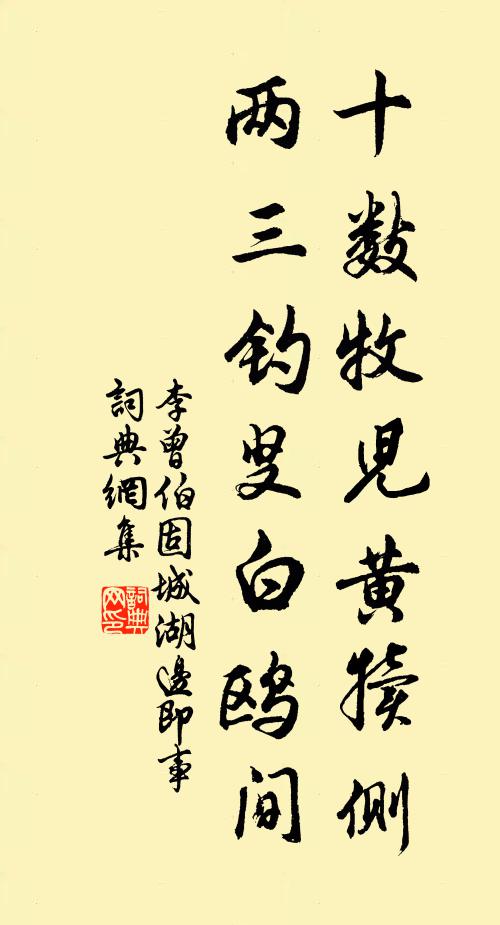 十数牧児黄犢側
两三钓叟白鸥间
李曾伯固城湖邊即事
詞典網集
詞典网印